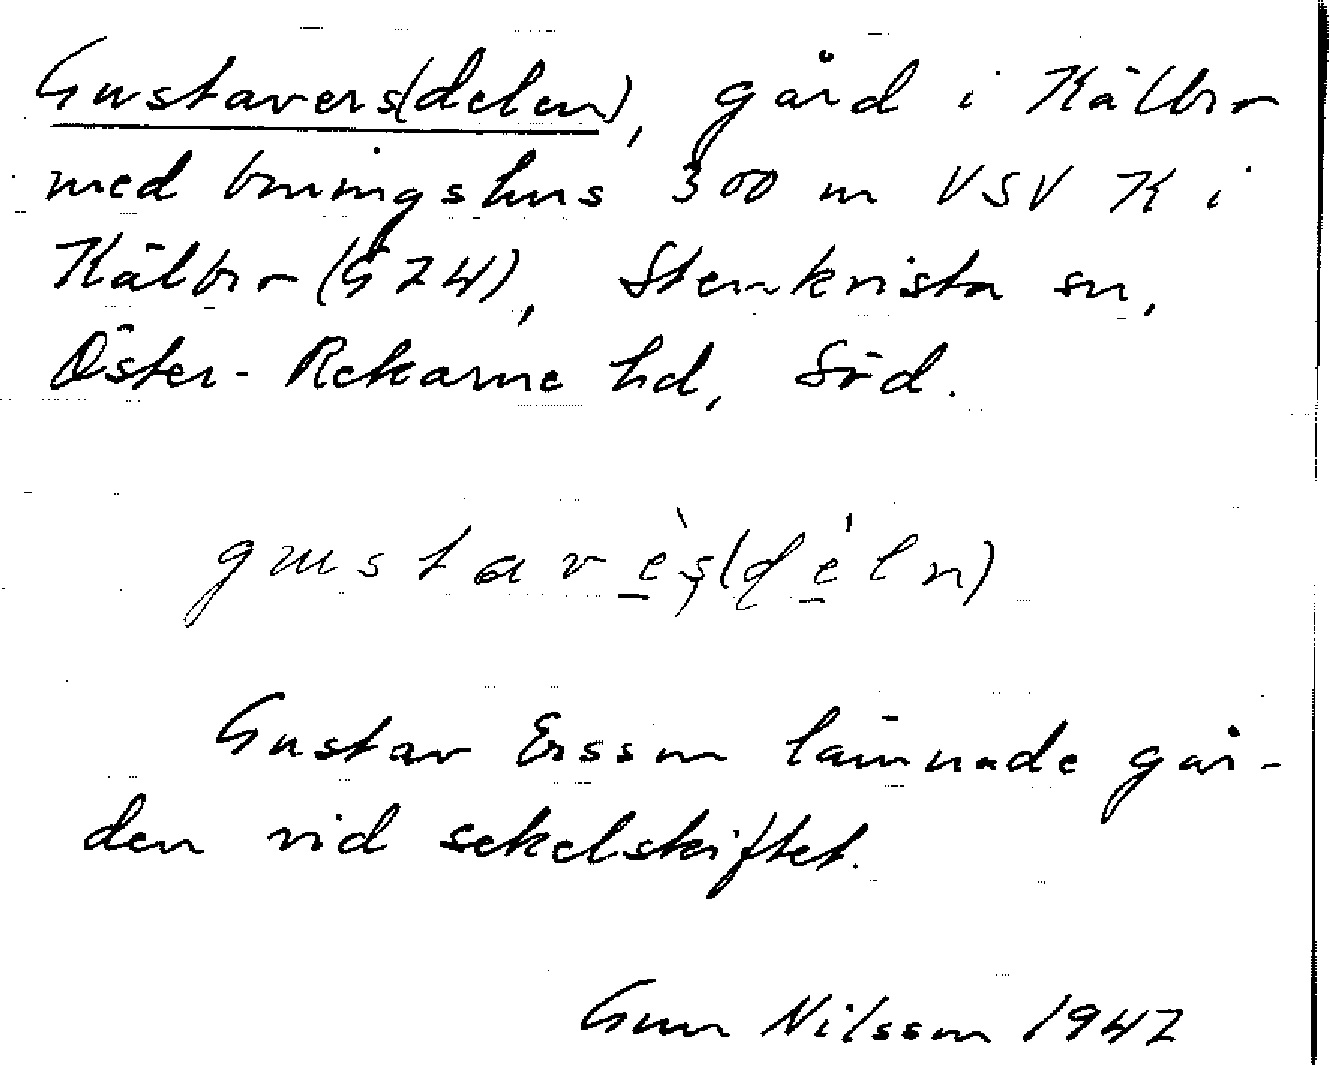 Gustavers(delen), gård i Kälbro
med boningshus 300 m VSV K i
Kälbro (G 7 4), Stenkvista sn,
Öster-Rekarne hd, Söd.
gustavès(déln)
Gustav Ersson lämnade går-
den vid sekelskiftet.
Gun Nilsson 1947